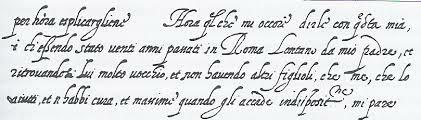 per hora esplicargliene Hora q̃l che mi occorre dirle con q̃sta mia,
è ch'essendo stato uenti anni passati in Roma Lontano da mio padre, et
ritrouandosi lui molto uecchio, et non hauendo altri figliuoli, che me, che lo
aiuti, et n habbi cura, et massime quando gli accade indispositne, mi pare